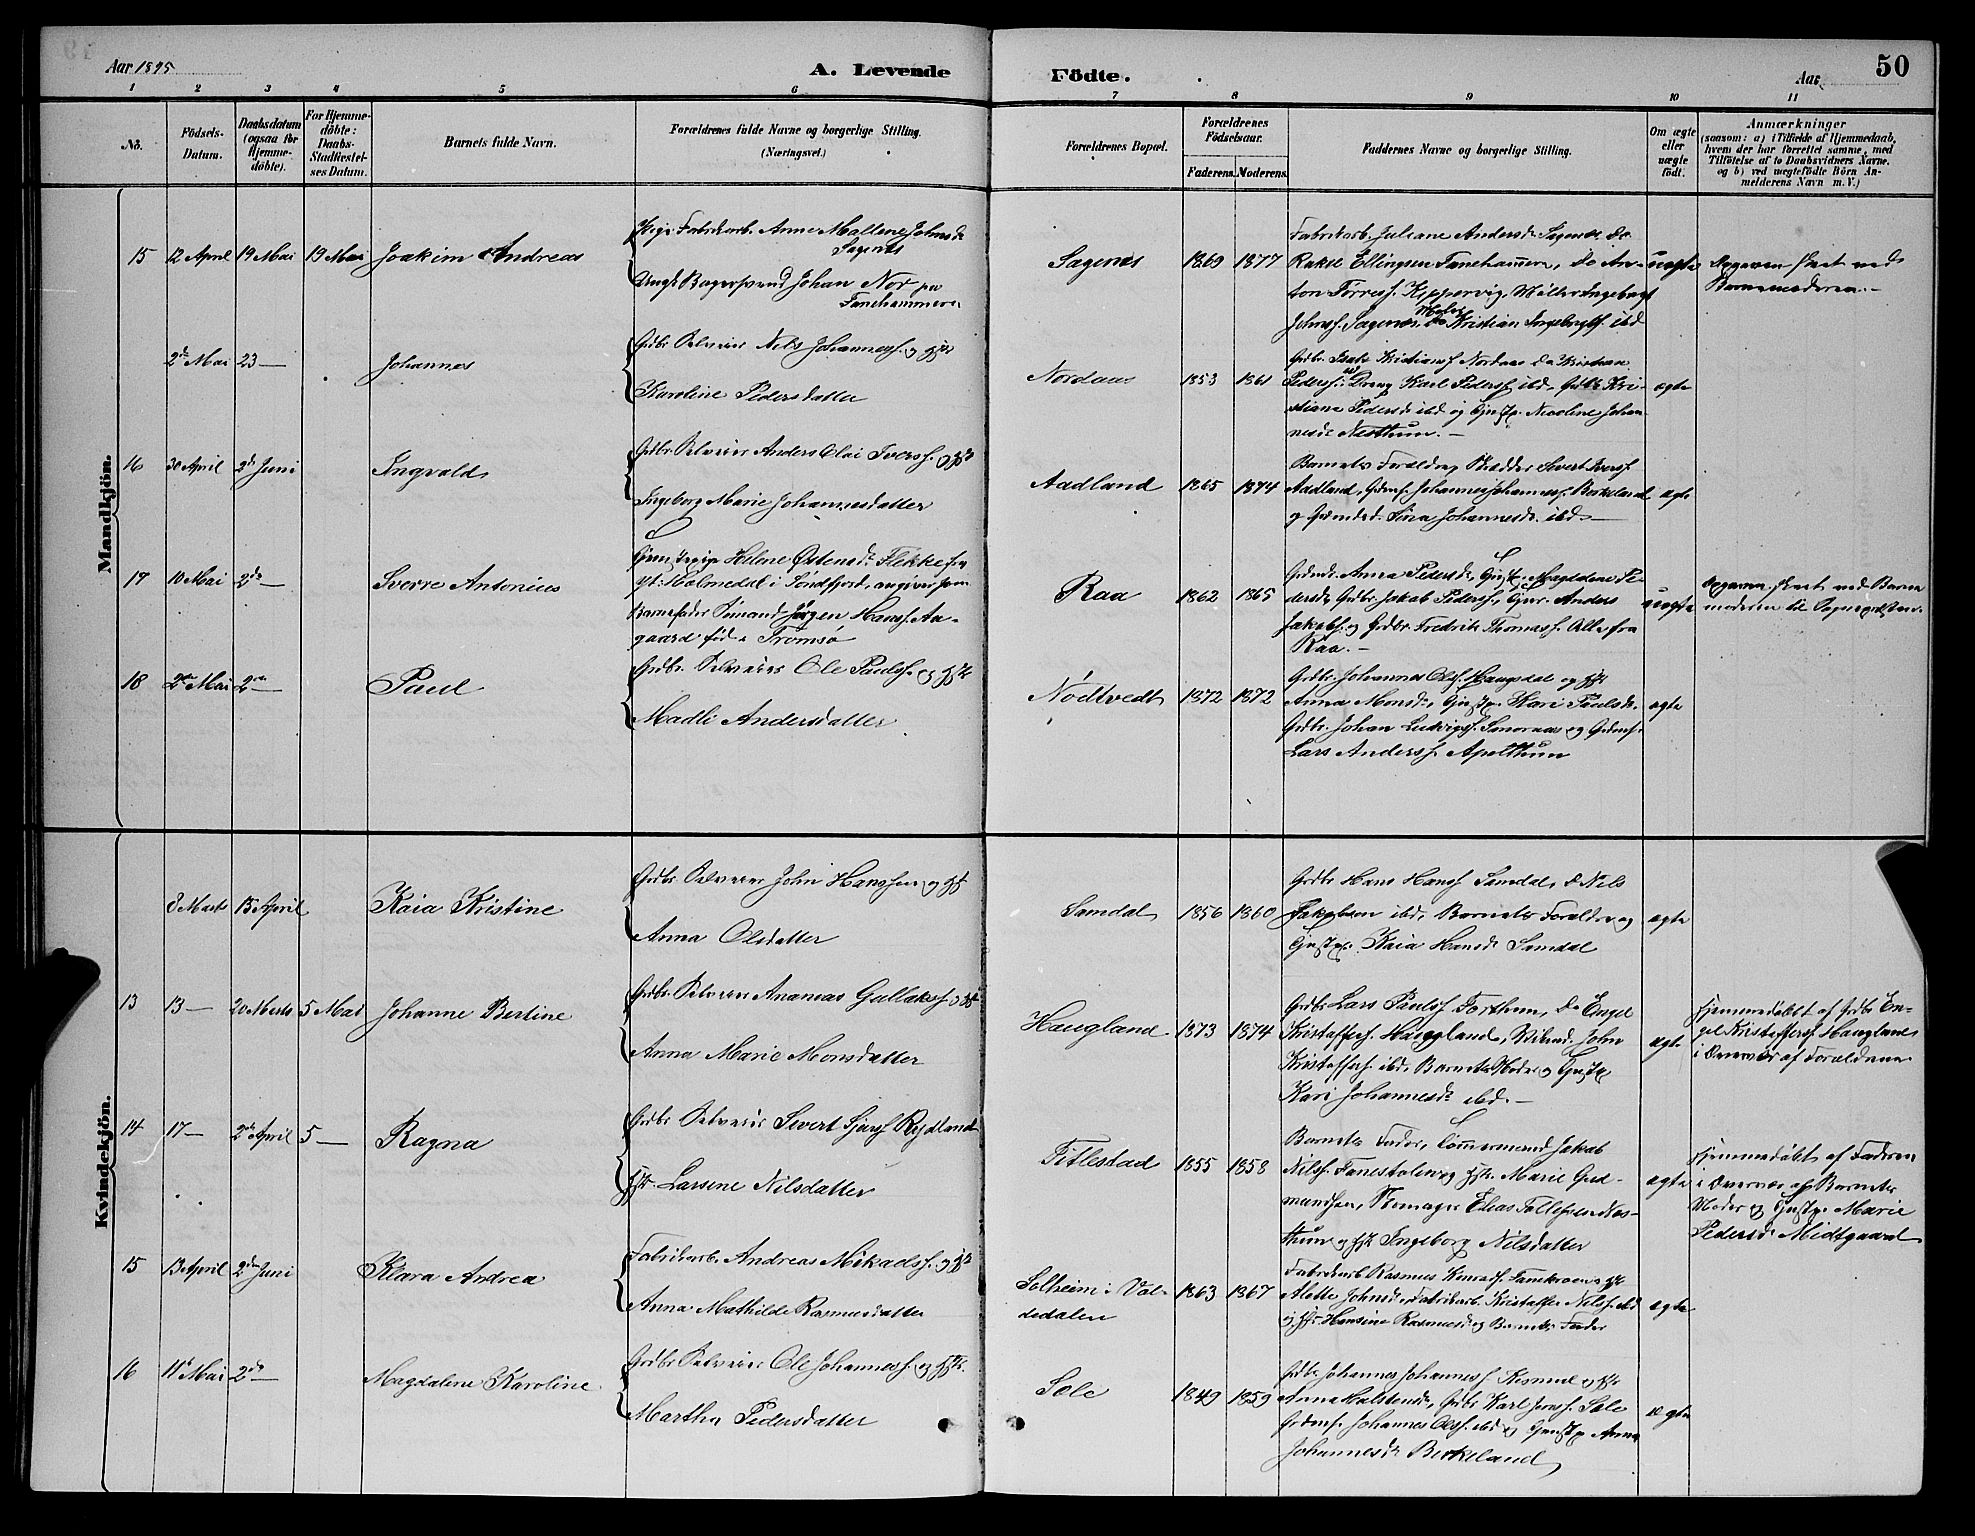 Aar 1895
A. Levende
Födte.
Aar
50
1 2 3 4 5 6 7 8 9 10 11
No.
Födsels-
Datum.
Daabsdatum
(ogsaa for
Hjemme-
döbte).
For Hjemme-
döbte:
Daabs-
Stadfæstel-
ses Datum.
Barnets fulde Navn.
Forældrenes fulde Navne og borgerlige Stilling.
(Næringsvei.)
Forældrenes Bopæl.
Forældrenes
Födselsaar.
Faderens. Moderens.
Faddernes Navne og borgerlige Stilling.
Om ægte
eller
uægte
födt.
Anmærkninger
(saasom: a) i Tilfælde af Hjemmedaab,
hvem der har forrettet samme, med
Tilföielse af to Daabsvidners Navne.
og b) ved uægtefödte Börn An-
melderens Navn m. V.)
Mandkjön.
15 12 April 19 Mai 19 Mai Joakim Andreas
Pige Fabrikarb. Anne Mallene Johnsdr
Sagenæs
Ungk. Bagersvend Johan Nor paa
Fanehammeren
Sagenæs 1869 1877
Fabrikarb. Juliane Andersdr Sagenæs Do
Rakel Ellingsen Fanehammeren, Do An-
ton Torress. Kippervig, Møller Ingebregt
Johnss. Sagenæs Maler Kristian Ingebregts. ibd
uægte
Opgaven skeet ved
Barnemoderen.-
2den Mai 23 — Johannes
Gdbr. Selveier Nils Johanness. og Hstr
Karoline Pedersdatter
Nordaas 1853 1861
Gdbr. Isak Kristians. Nordaas Do Kristian
Peders. Dreng Karl Peders. ibd, Kri-
stiane Pedersdr ibd og Nicoline Johan-
nesdr Nestthun.-
ægte
16 30 April 2den Juni Ingvald
Gdbr. Selveier Anders Olai Iverss. og Hstr
Ingeborg Marie Johannesdatter
Aadland 1865 1874
Barnets Forældre, Skrædder Sivert Iverss.
Aadland, Gdmds. Johannes Johanness. Birkeland
og Gdmdsd. Sina Johannesdr. ibd.—
ægte
17 10 Mai 2den — Sverre Antonius
Helene Østensdr Flekke fra
Holmedal i Söndfjord, angiver som
Barnefader Sömand Jörgen Hanss. Aa-
gaard fød i Tromsö
Raa 1862 1865
Anna Pedersdr, Magdalene Pe-
dersdr, Gdbr. Jakob Peders., Anders
Jakobs. og Gdbr. Fredrik Thomass. Alle fra
Raa.-
uægte
Opgaven skeet ved Barne
moderen til Sognepresten.
18 2den Mai 2den — Paul
Gdbr. Selveier Ole Pauls. og Hstr
Madli Andersdatter
Nödtvedt 1872 1872
Gdbr. Johannes Ols. Haugsdal og Hstr
Anna Monsdr, Kari Paulsdr.
Gdbr. Johan Ludvigs. Smoraas og Gdmds.
Lars Anderss. Apeltthun
ægte
Kvindekjön.
8 Marts 15 April Kaia Kristine
Gdbr Selveier John Hanssen og Hstr
Anna Olsdatter
Samdal 1856 1860
Gdbr Hans Hanss Samdal, Do Nils
Jakobsen ibd, Barnets Forældre og
Kaia Hansdr Samdal
ægte
13 13 — 20 Marts 5 Mai Johanne Bertine
Gdbr. Selveier Ananias Gullaks. og Hstr
Anna Marie Monsdatter
Haugland 1873 1874
Gdbr Lars Pauls. Forthun, Do Engel
Kristoffers. Haugland, John
Kristoffers. ibd. Barnets Moder og
Kari Johannesdr ibd.-
ægte
Hjemmedöbt af Gdbr En-
gel Kristoffers. Haugland
i Overvær af Forældrene
14 17 — 2den April 5 — Ragna
Gdbr Selveier Sivert Rydland
Hstr. Larsine Nilsdatter
Titlestad 1855 1858
Barnets Fader, Tømmermand Jakob
Nilss. Fanestølen og Hstr. Marie Gud-
mundsen, Skomager Elias Tollefsen Nes-
tthun og Hstr Ingeborg Nilsdatter
ægte
Hjemmedöbt af Faderen
i Overvær af Barnets
Moder og Marie
Pedersdr Midtgaard
15 13 April 2den Juni Klara Andrea
Fabrikarb. Andreas Mikals. og Hstr
Anna Mathilde Rasmusdatter
Solheim i Val-
dedalen 1863 1867
Fabrikarb Rasmus Fanekroen Hstr
Alette Johnsdr, Fabrikarb. Kristoffer Nilss. ibd
og Hstr Hansine Rasmusdr og Barnets Fader
ægte
16 11 Mai 2den — Magdalene Karoline
Gdbr Selveier Ole Johanness. og Hstr.
Martha Pedersdatter
Sæle 1849 1859
Gdbr Johannes Johanness Kismul og Hstr
Anna Halstensdr, Gdbr Karl Sæle
Gdmds. Johannes Olss. ibd og Anna
Johannesdr Birkeland
ægte